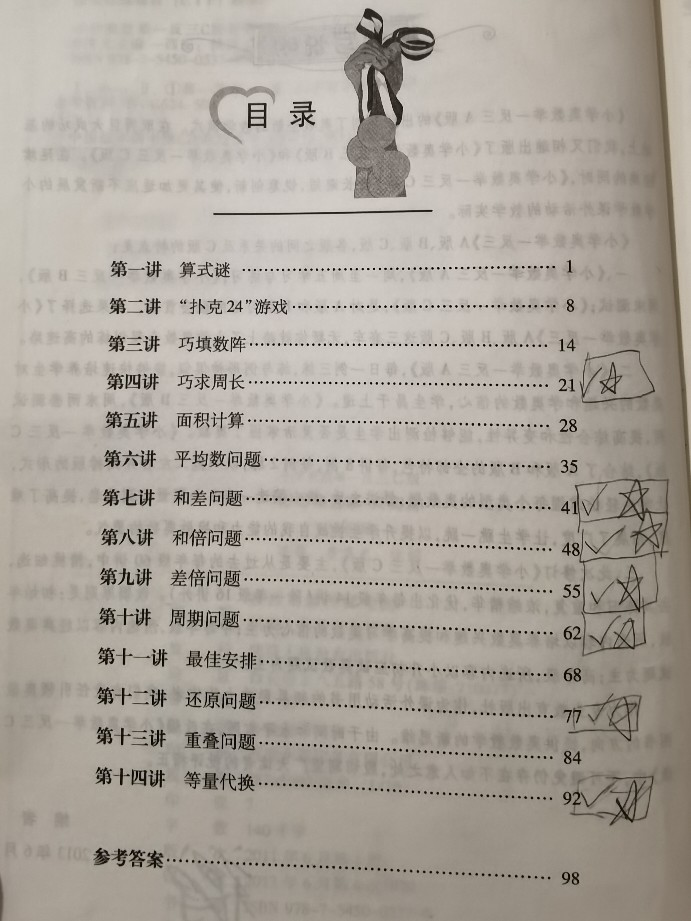 目录
第一讲 算式谜 1
第二讲 “扑克24”游戏 8
第三讲 巧填数阵 14
第四讲 巧求周长 21
第五讲 面积计算 28
第六讲 平均数问题 35
第七讲 和差问题 41
第八讲 和倍问题 48
第九讲 差倍问题 55
第十讲 周期问题 62
第十一讲 最佳安排 68
第十二讲 还原问题 77
第十三讲 重叠问题 84
第十四讲 等量代换 92
参考答案 98